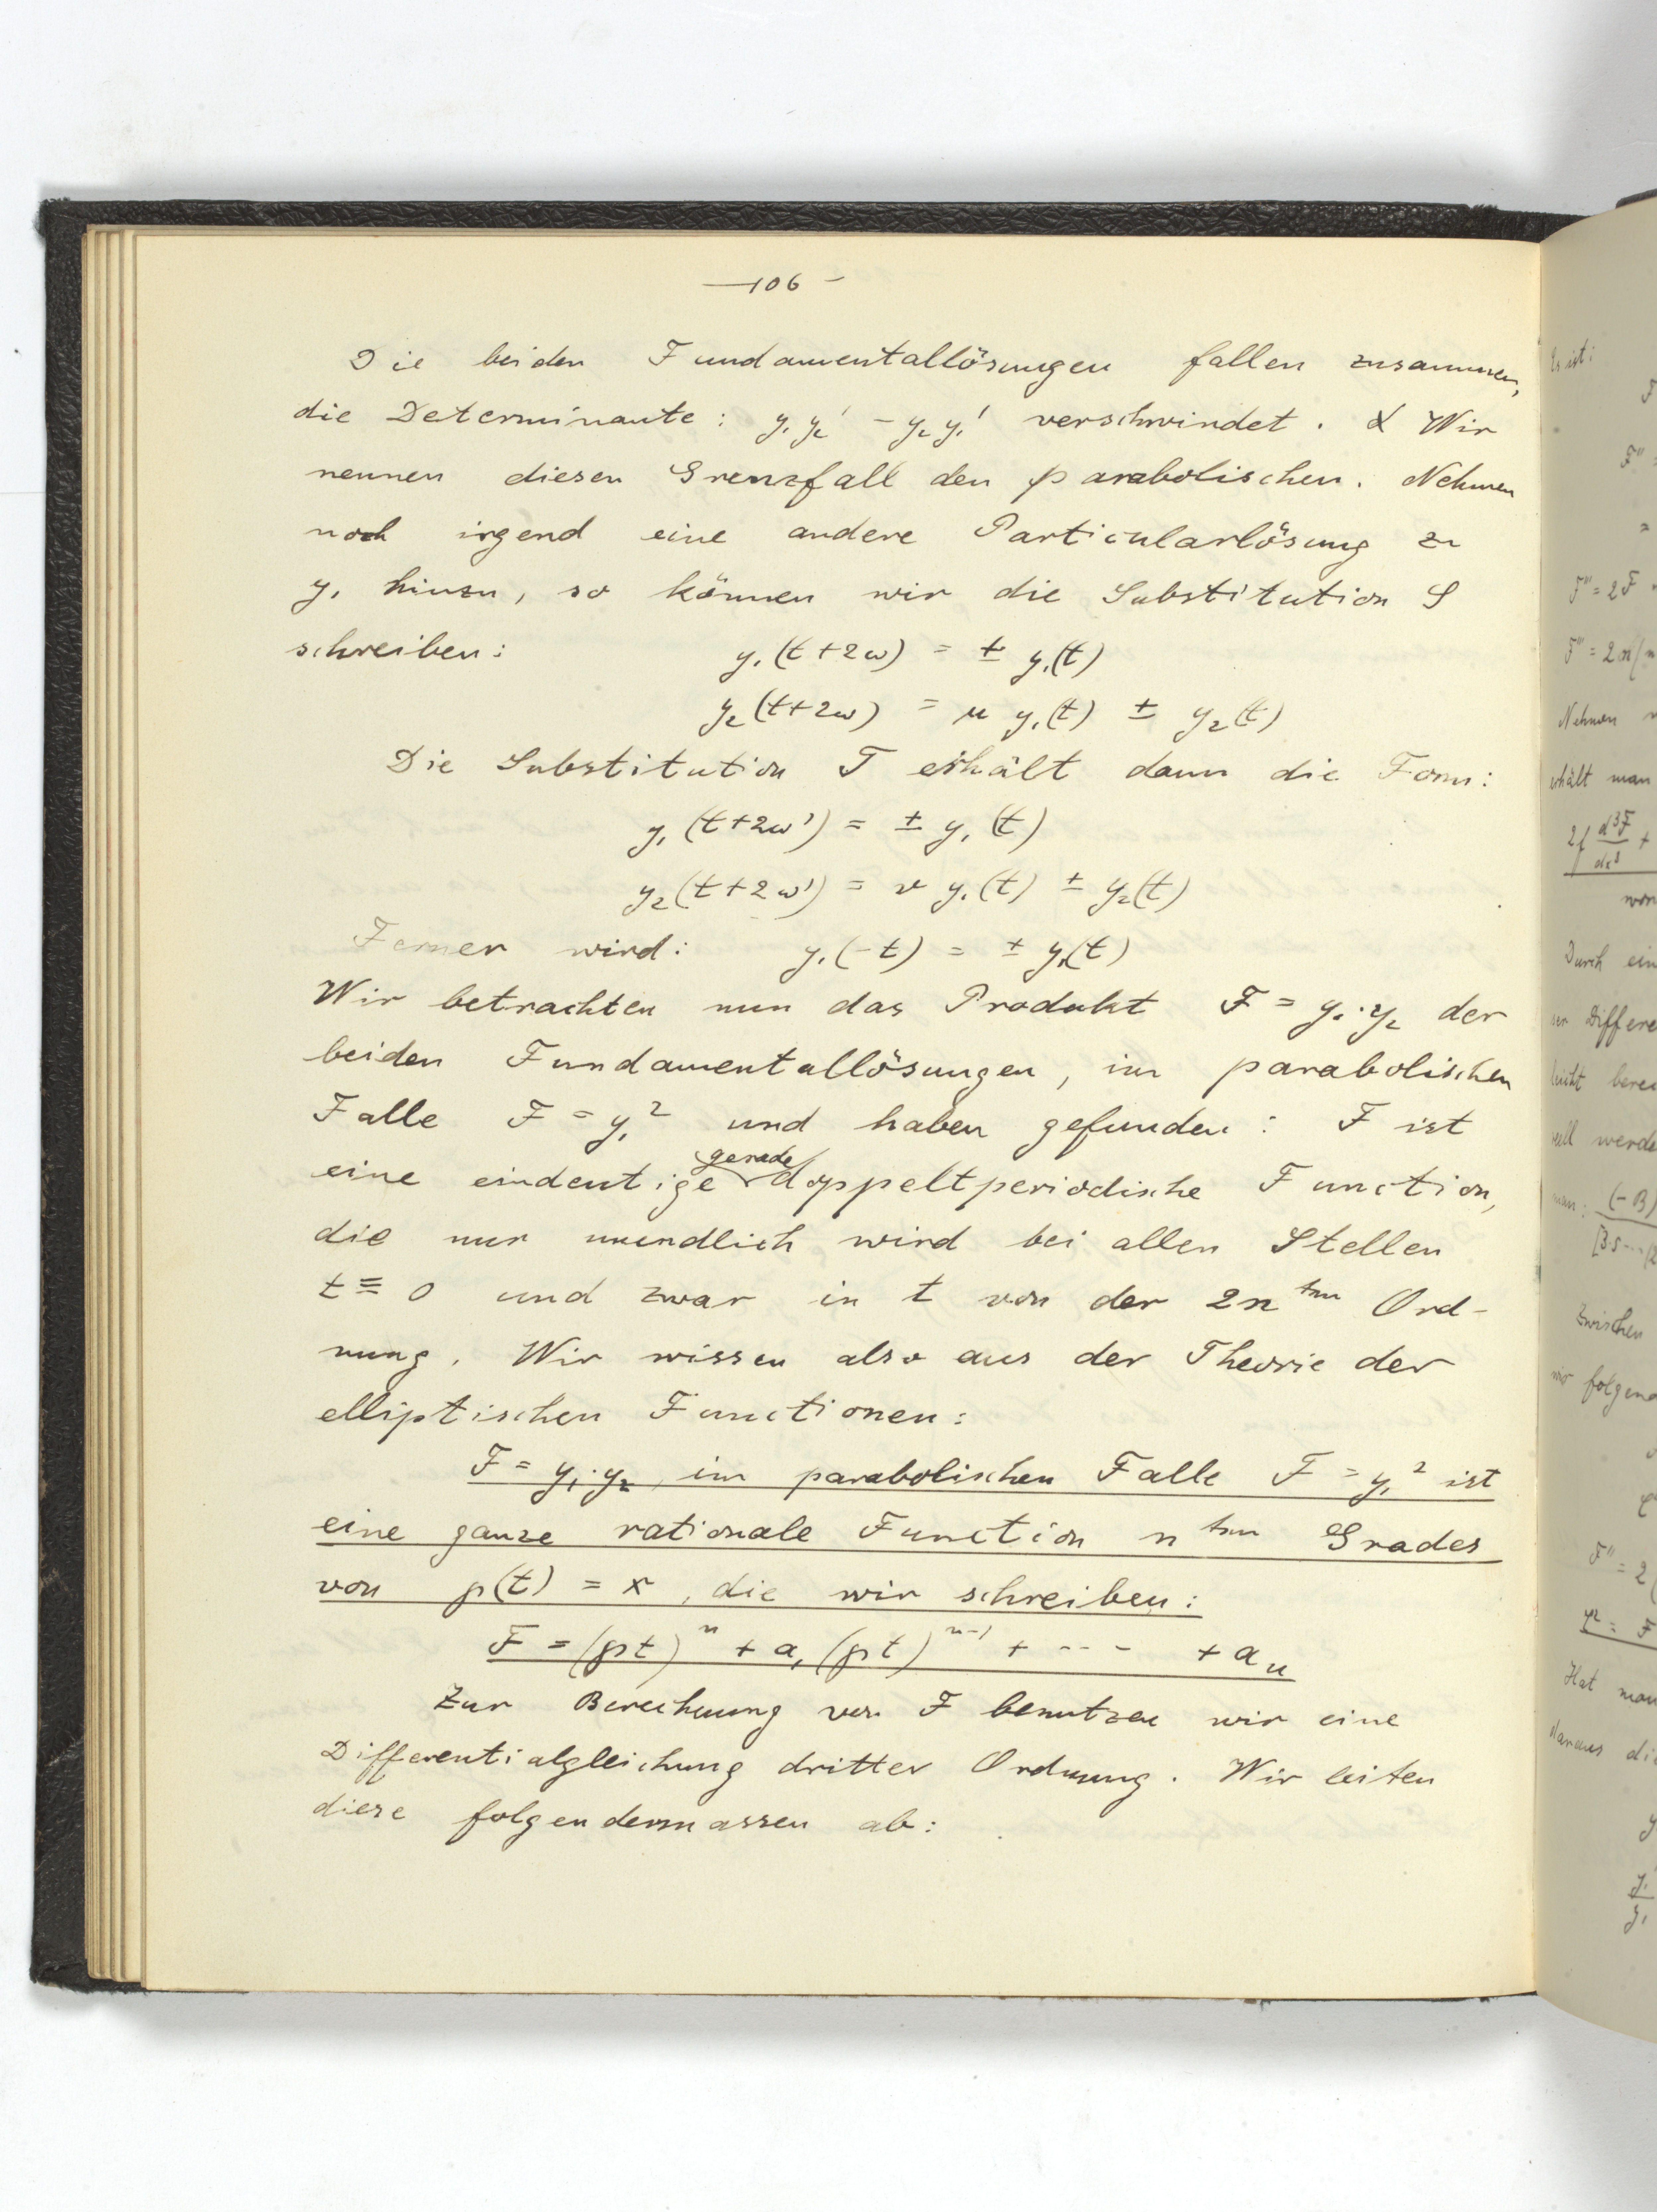 — 106 –
Die beiden Fundamentallösungen fallen zusammen,
die Determinante: y₁y₂' – y₂y₁' verschwindet. Wir
nennen diesen Grenzfall den parabolischen. Nehmen
noch irgend eine andere Particularlösung zu
y₁ hinzu, so können wir die Substitution S
schreiben: y₁(t+2ω) = ± y₁(t)
y₂(t+2ω) = μ y₁(t) ± y₂(t)
Die Substitution T erhält dann die Form:
y₁(t+2ω') = ± y₁(t)
y₂(t+2ω') = ν y₁(t) ± y₂(t)
Ferner wird: y₁(-t) = ± y₁(t)
Wir betrachten nun das Produkt F = y₁·y₂ der
beiden Fundamentallösungen, im parabolischen
Falle F = y₁² und haben gefunden: F ist
eine eindeutige gerade doppeltperiodische Function,
die nur unendlich wird bei allen Stellen
t ≡ 0 und zwar in t von der 2n ten Ord-
nung. Wir wissen also aus der Theorie der
elliptischen Functionen:
F = y₁·y₂, im parabolischen Falle F = y₁² ist
eine ganze rationale Function n ten Grades
von p(t) = x, die wir schreiben:
F = (pt)ⁿ + a₁(pt)ⁿ⁻¹ + - - - + aₙ
Zur Berechnung von F benutzen wir eine
Differentialgleichung dritter Ordnung. Wir leiten
diese folgendermassen ab:
Es ist:
F'' =
F''' = 2F
F''' = 2n(n
Nehmen
erhält man
2f d³F/dx³ +
Durch ein
der Differe
leicht berec
man: (-B)
[3·5···(2
Zwischen
wir folgend
F'' = 2
Hat man
daraus die
y₁